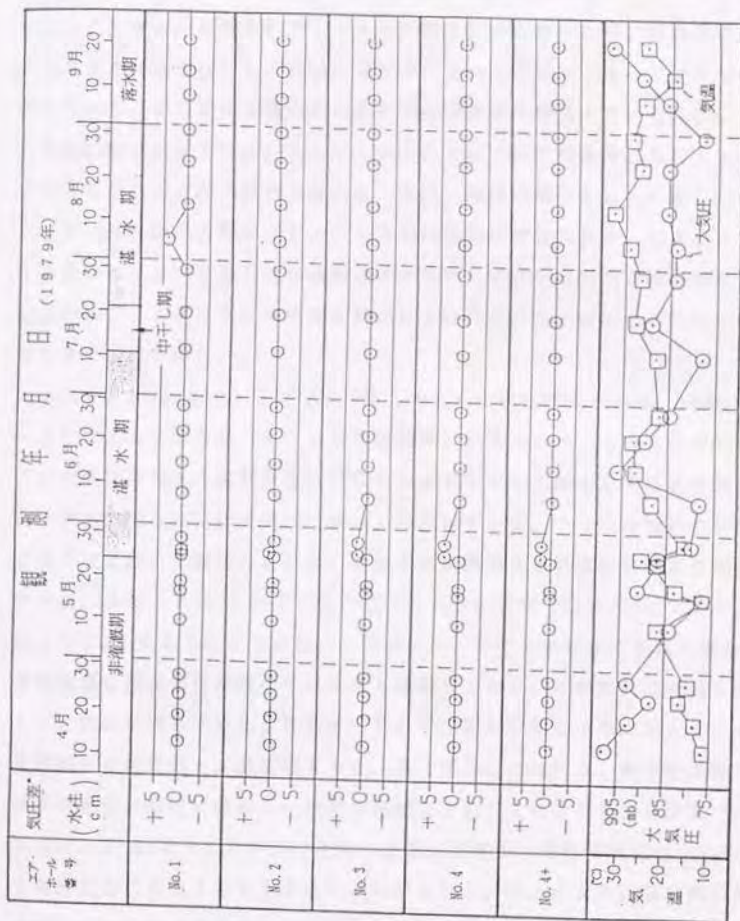 観測年月日 (1979年)
4月 5月 6月 7月 8月 9月
10 20 30 10 20 30 10 20 30 10 20 30 10 20 30 10 20
非灌漑期 湛水期 中干し期 湛水期 落水期
エア・ホール番号
気圧差*
(水柱cm)
No.1 +5 0 -5
No.2 +5 0 -5
No.3 +5 0 -5
No.4 +5 0 -5
No.4+ +5 0 -5
(℃) 30 20 10
気温
995 (mb) 85 75
大気圧
大気圧
気温